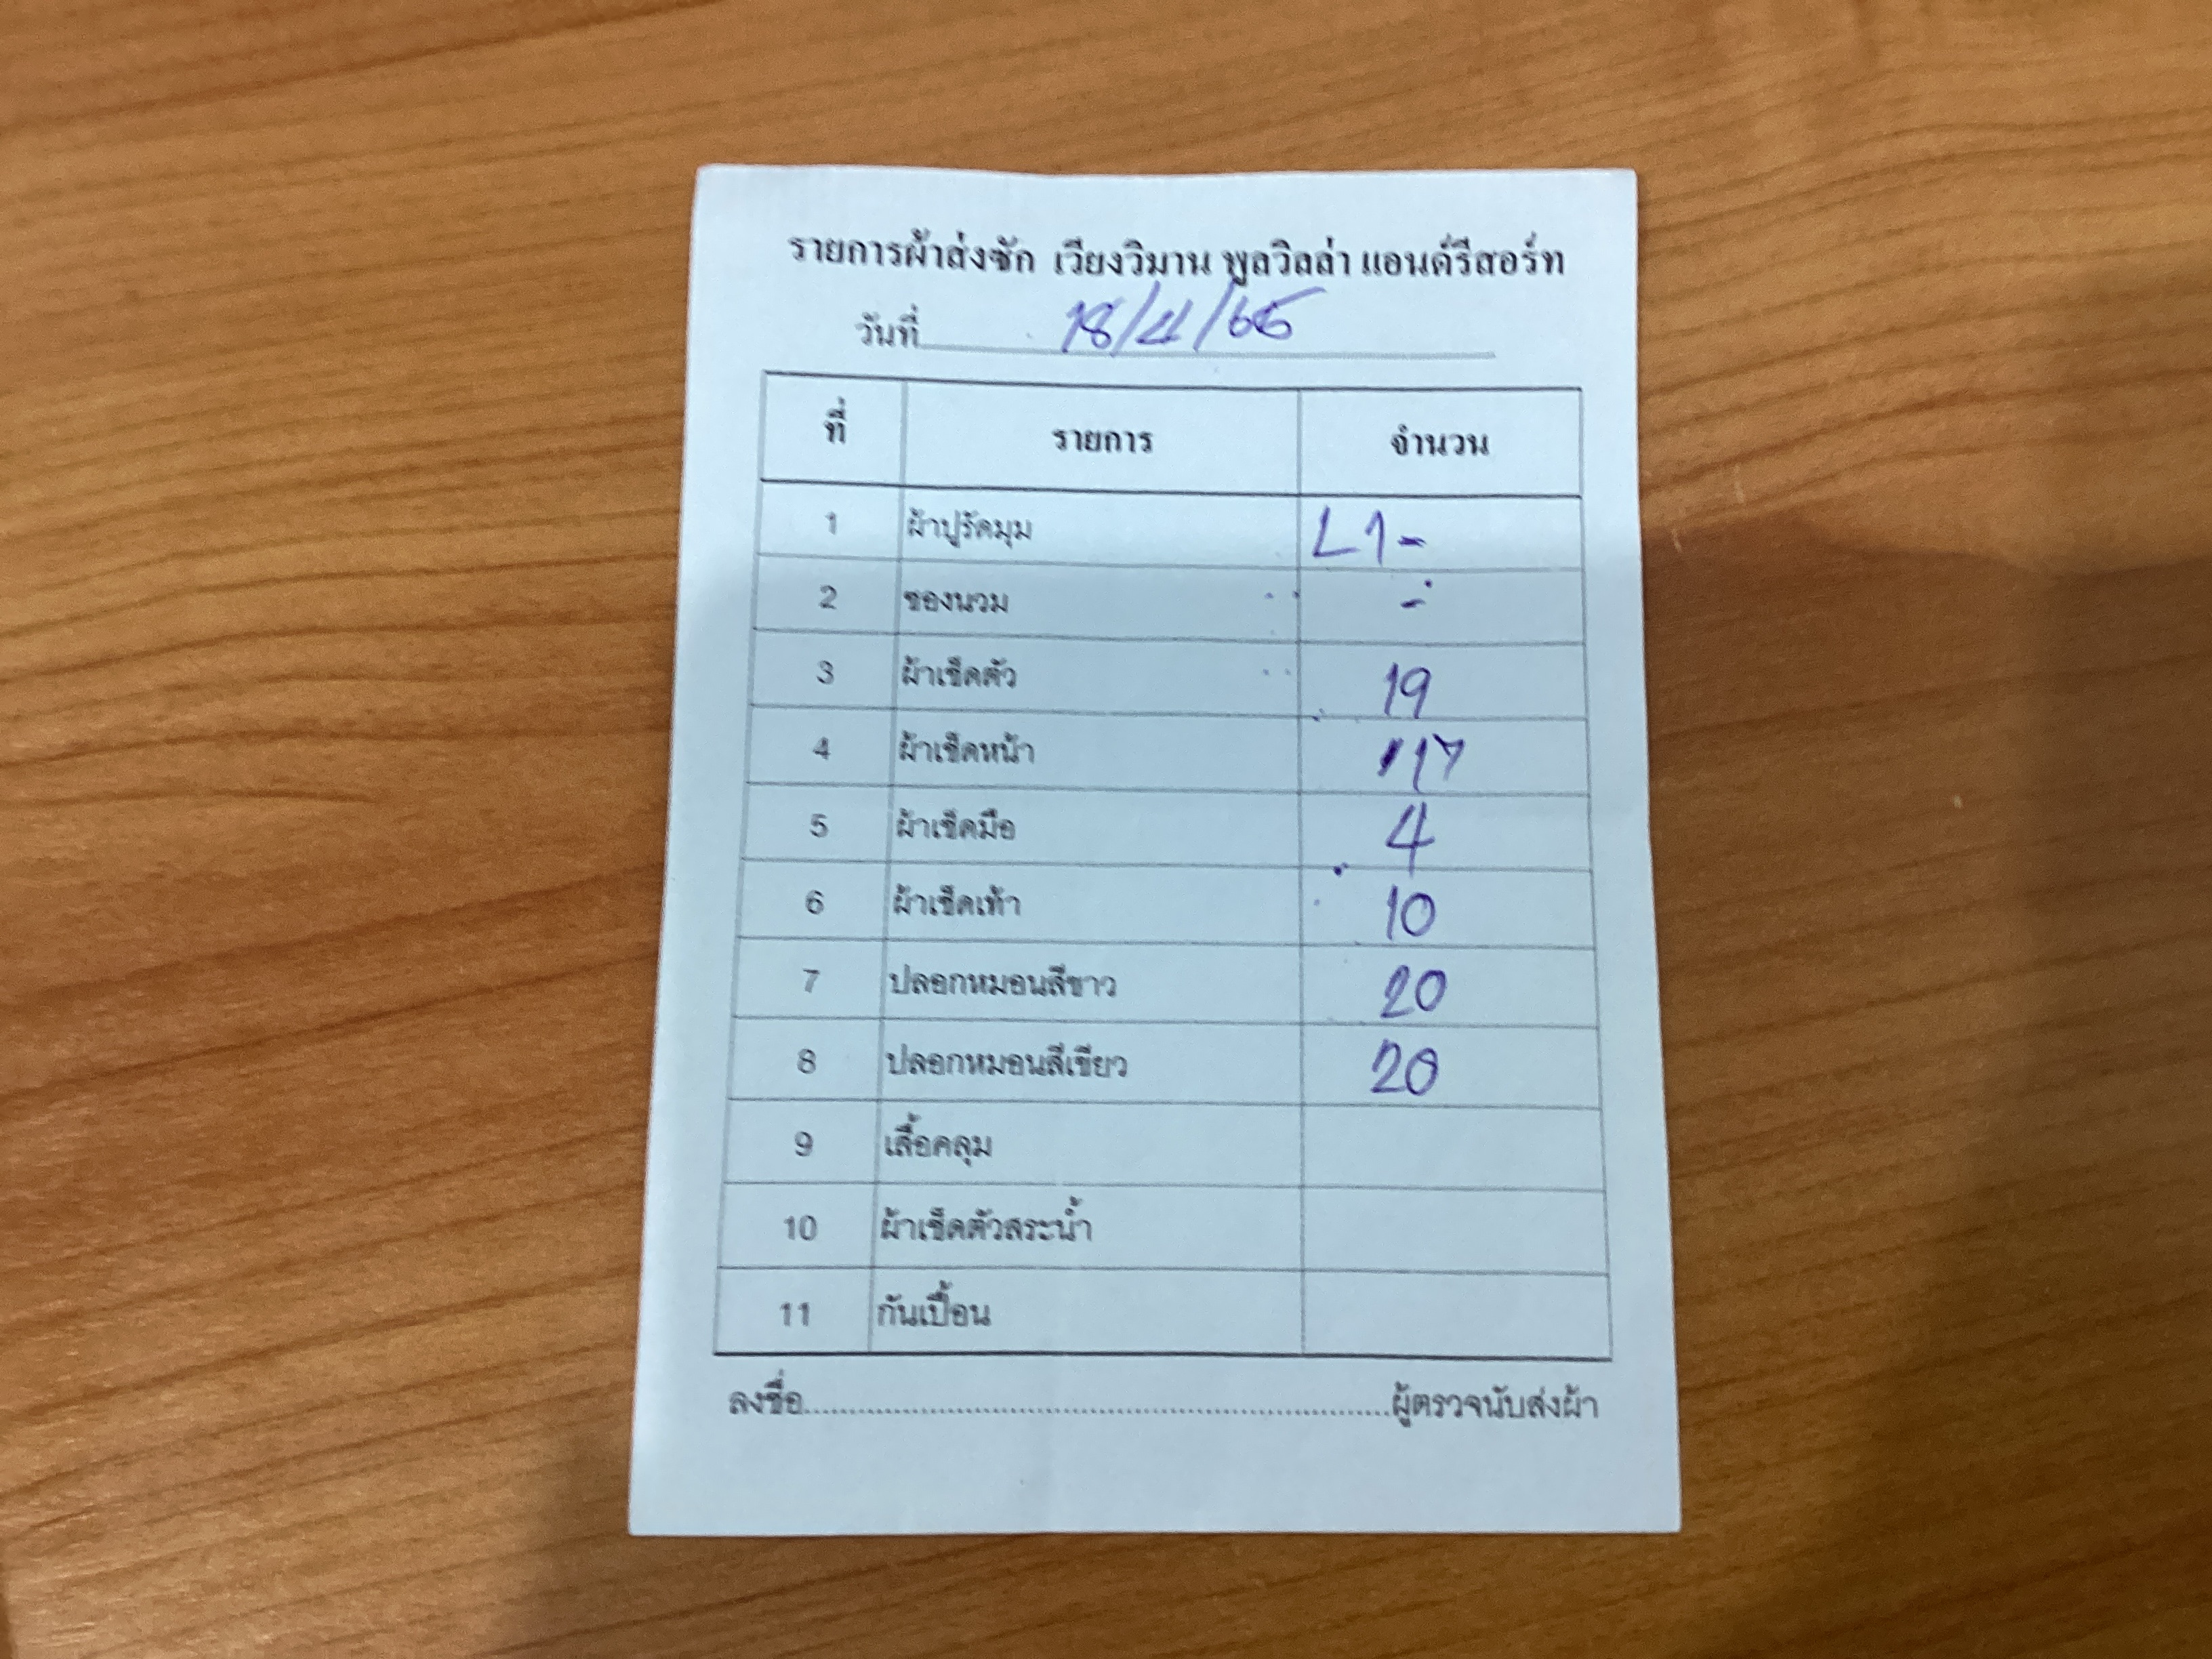 รายการผ้าส่งซัก เวียงวิมาน พูลวิลล่า แอนด์รีสอร์ท
วันที่ 18/4/65
ที่ รายการ จำนวน
1 ผ้าปูรัดมุม L1-
2 ซองนวม -
3 ผ้าเช็ดตัว 19
4 ผ้าเช็ดหน้า 17
5 ผ้าเช็ดมือ 4
6 ผ้าเช็ดเท้า 10
7 ปลอกหมอนสีขาว 20
8 ปลอกหมอนสีเขียว 20
9 เสื้อคลุม
10 ผ้าเช็ดตัวสระน้ำ
11 กันเปื้อน
ลงชื่อ..........ผู้ตรวจนับส่งผ้า